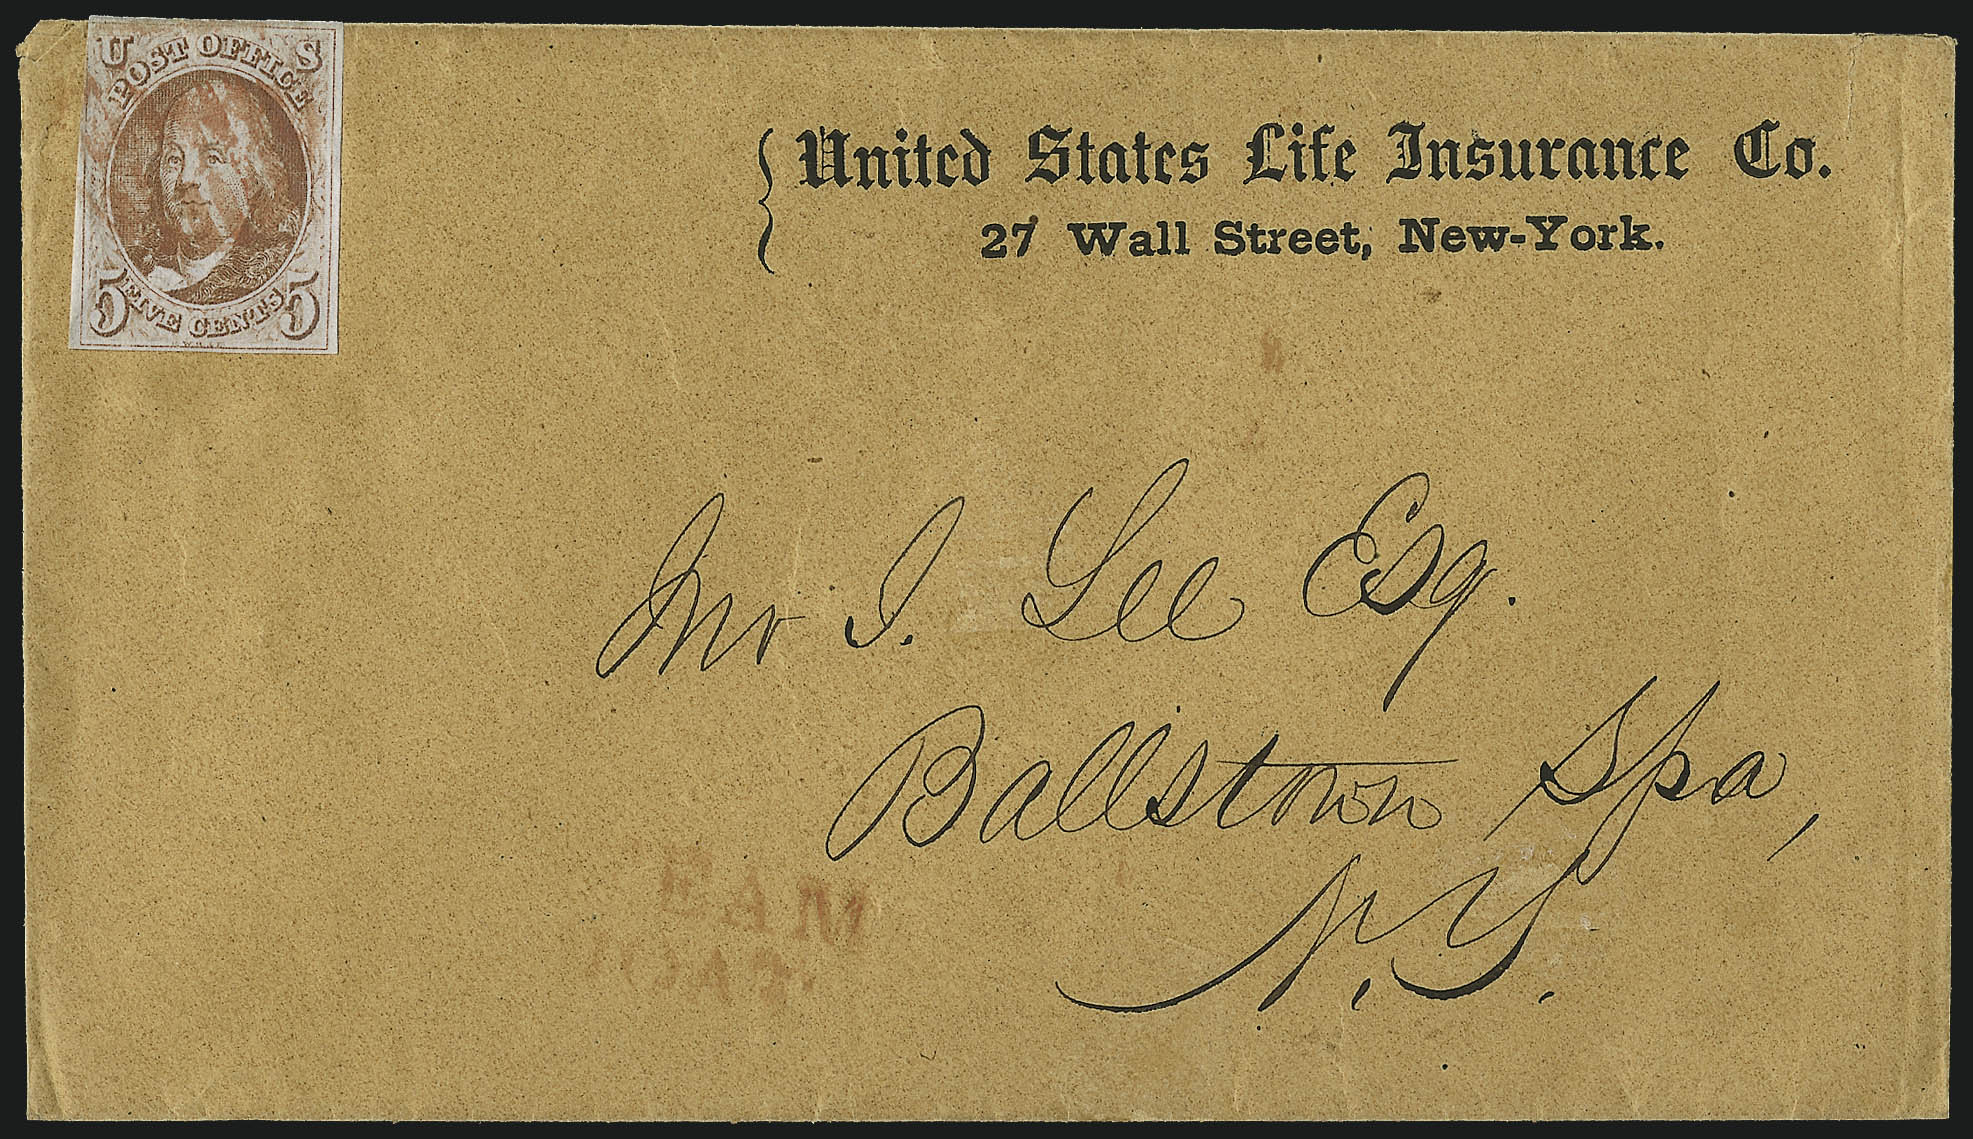 U S
POST OFFICE
5 FIVE CENTS 5
United States Life Insurance Co.
27 Wall Street, New-York.
Mr I. Lee Esq.
Ballstown Spa,
N.Y.